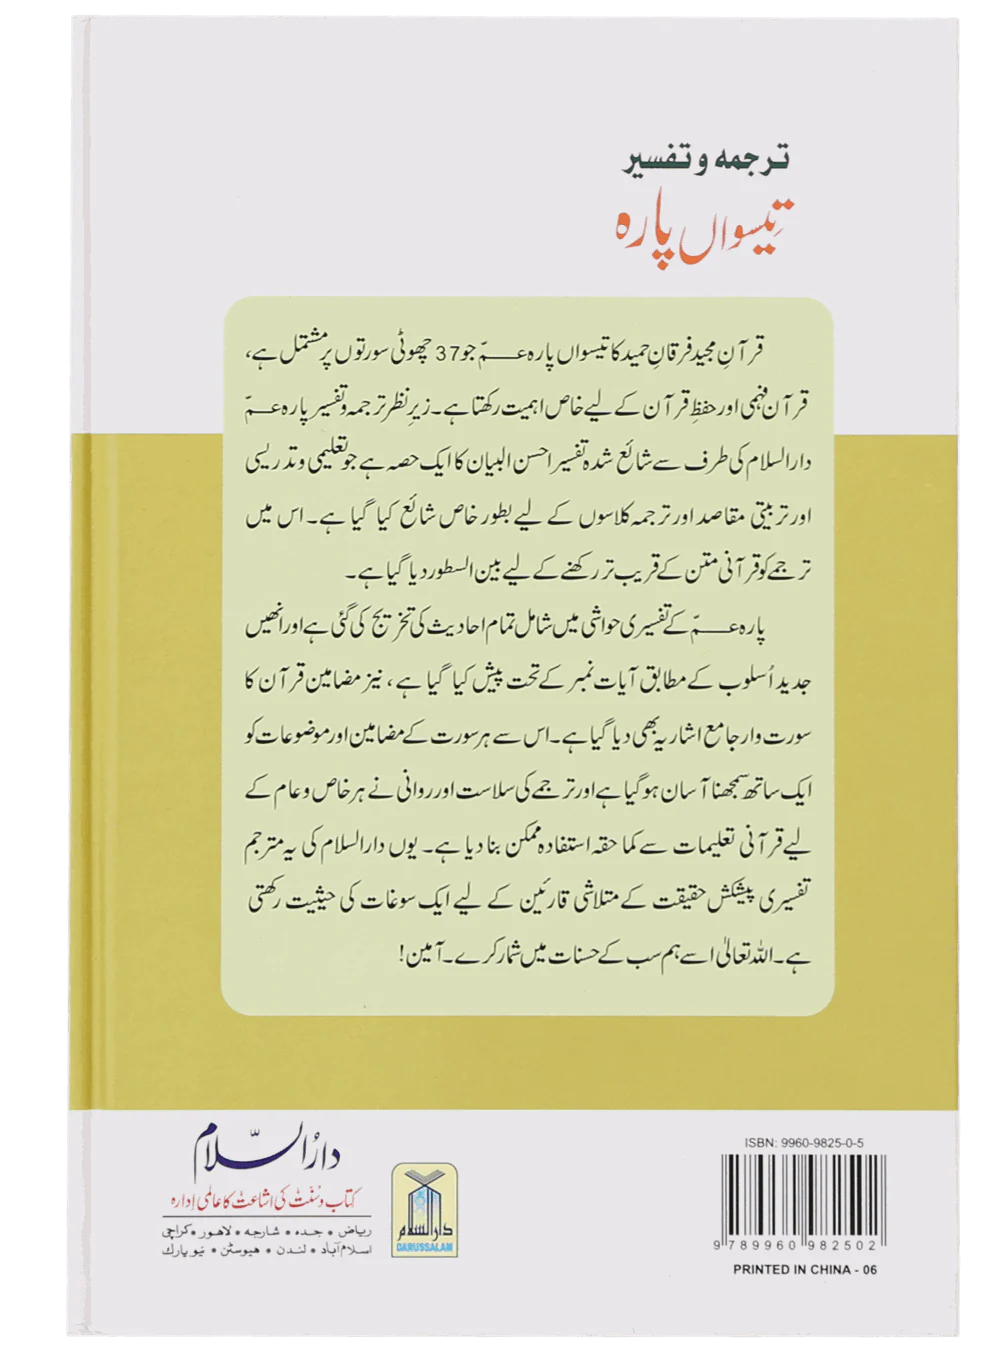 ترجمه و تفسیر
تیسواں پارہ
قرآنِ مجید فرقانِ حمید کا تیسواں پارہ عمّ جو 37 چھوٹی سورتوں پر مشتمل ہے،
قرآن فہمی اور حفظِ قرآن کے لیے خاص اہمیت رکھتا ہے۔ زیرِنظر ترجمہ وتفسیر پارہ عمّ
دارالسلام کی طرف سے شائع شدہ تفسیر احسن البیان کا ایک حصہ ہے جو تعلیمی و تدریسی
اور تربیتی مقاصد اور ترجمہ کلاسوں کے لیے بطور خاص شائع کیا گیا ہے۔ اس میں
ترجمے کو قرآنی متن کے قریب تر رکھنے کے لیے بین السطور دیا گیا ہے۔
پارہ عمّ کے تفسیری حواشی میں شامل تمام احادیث کی تخریج کی گئی ہے اور انھیں
جدید اُسلوب کے مطابق آیات نمبر کے تحت پیش کیا گیا ہے، نیز مضامین قرآن کا
سورت وار جامع اشاریہ بھی دیا گیا ہے۔ اس سے ہر سورت کے مضامین اور موضوعات کو
ایک ساتھ سمجھنا آسان ہوگیا ہے اور ترجمے کی سلاست اور روانی نے ہر خاص وعام کے
لیے قرآنی تعلیمات سے کما حقہ استفادہ ممکن بنا دیا ہے۔ یوں دارالسلام کی یہ مترجم
تفسیری پیشکش حقیقت کے متلاشی قارئین کے لیے ایک سوغات کی حیثیت رکھتی
ہے۔ اللہ تعالیٰ اسے ہم سب کے حسنات میں شمار کرے۔ آمین!
دارُالسّلام
کتاب و سُنّت کی اشاعت کا عالمی اِدارہ
ریاض • جدہ • شارجہ • لاهور • کراچی
اسلام آباد • لندن • هیوسٹن • نیو یارک
دارالسلام
DARUSSALAM
ISBN: 9960-9825-0-5
9 789960 982502
PRINTED IN CHINA - 06